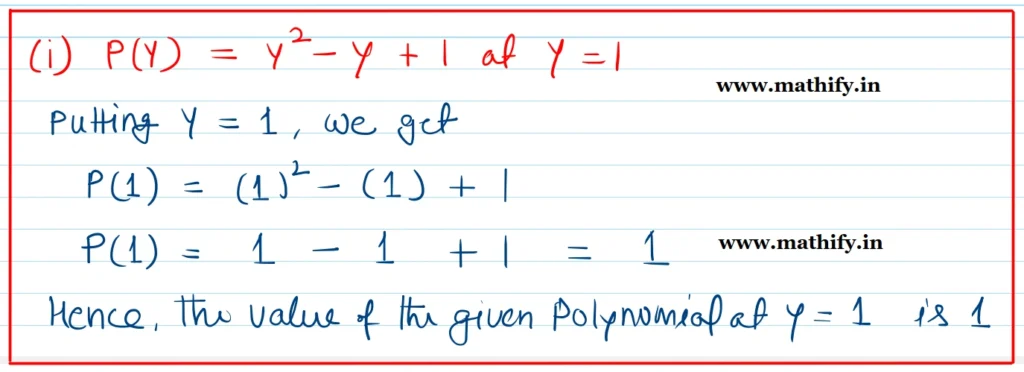 (i) P(Y) = y² - y + 1 at y = 1
www.mathify.in
Putting y = 1, we get
P(1) = (1)² - (1) + 1
P(1) = 1 - 1 + 1 = 1
www.mathify.in
Hence, the value of the given Polynomial at y = 1 is 1